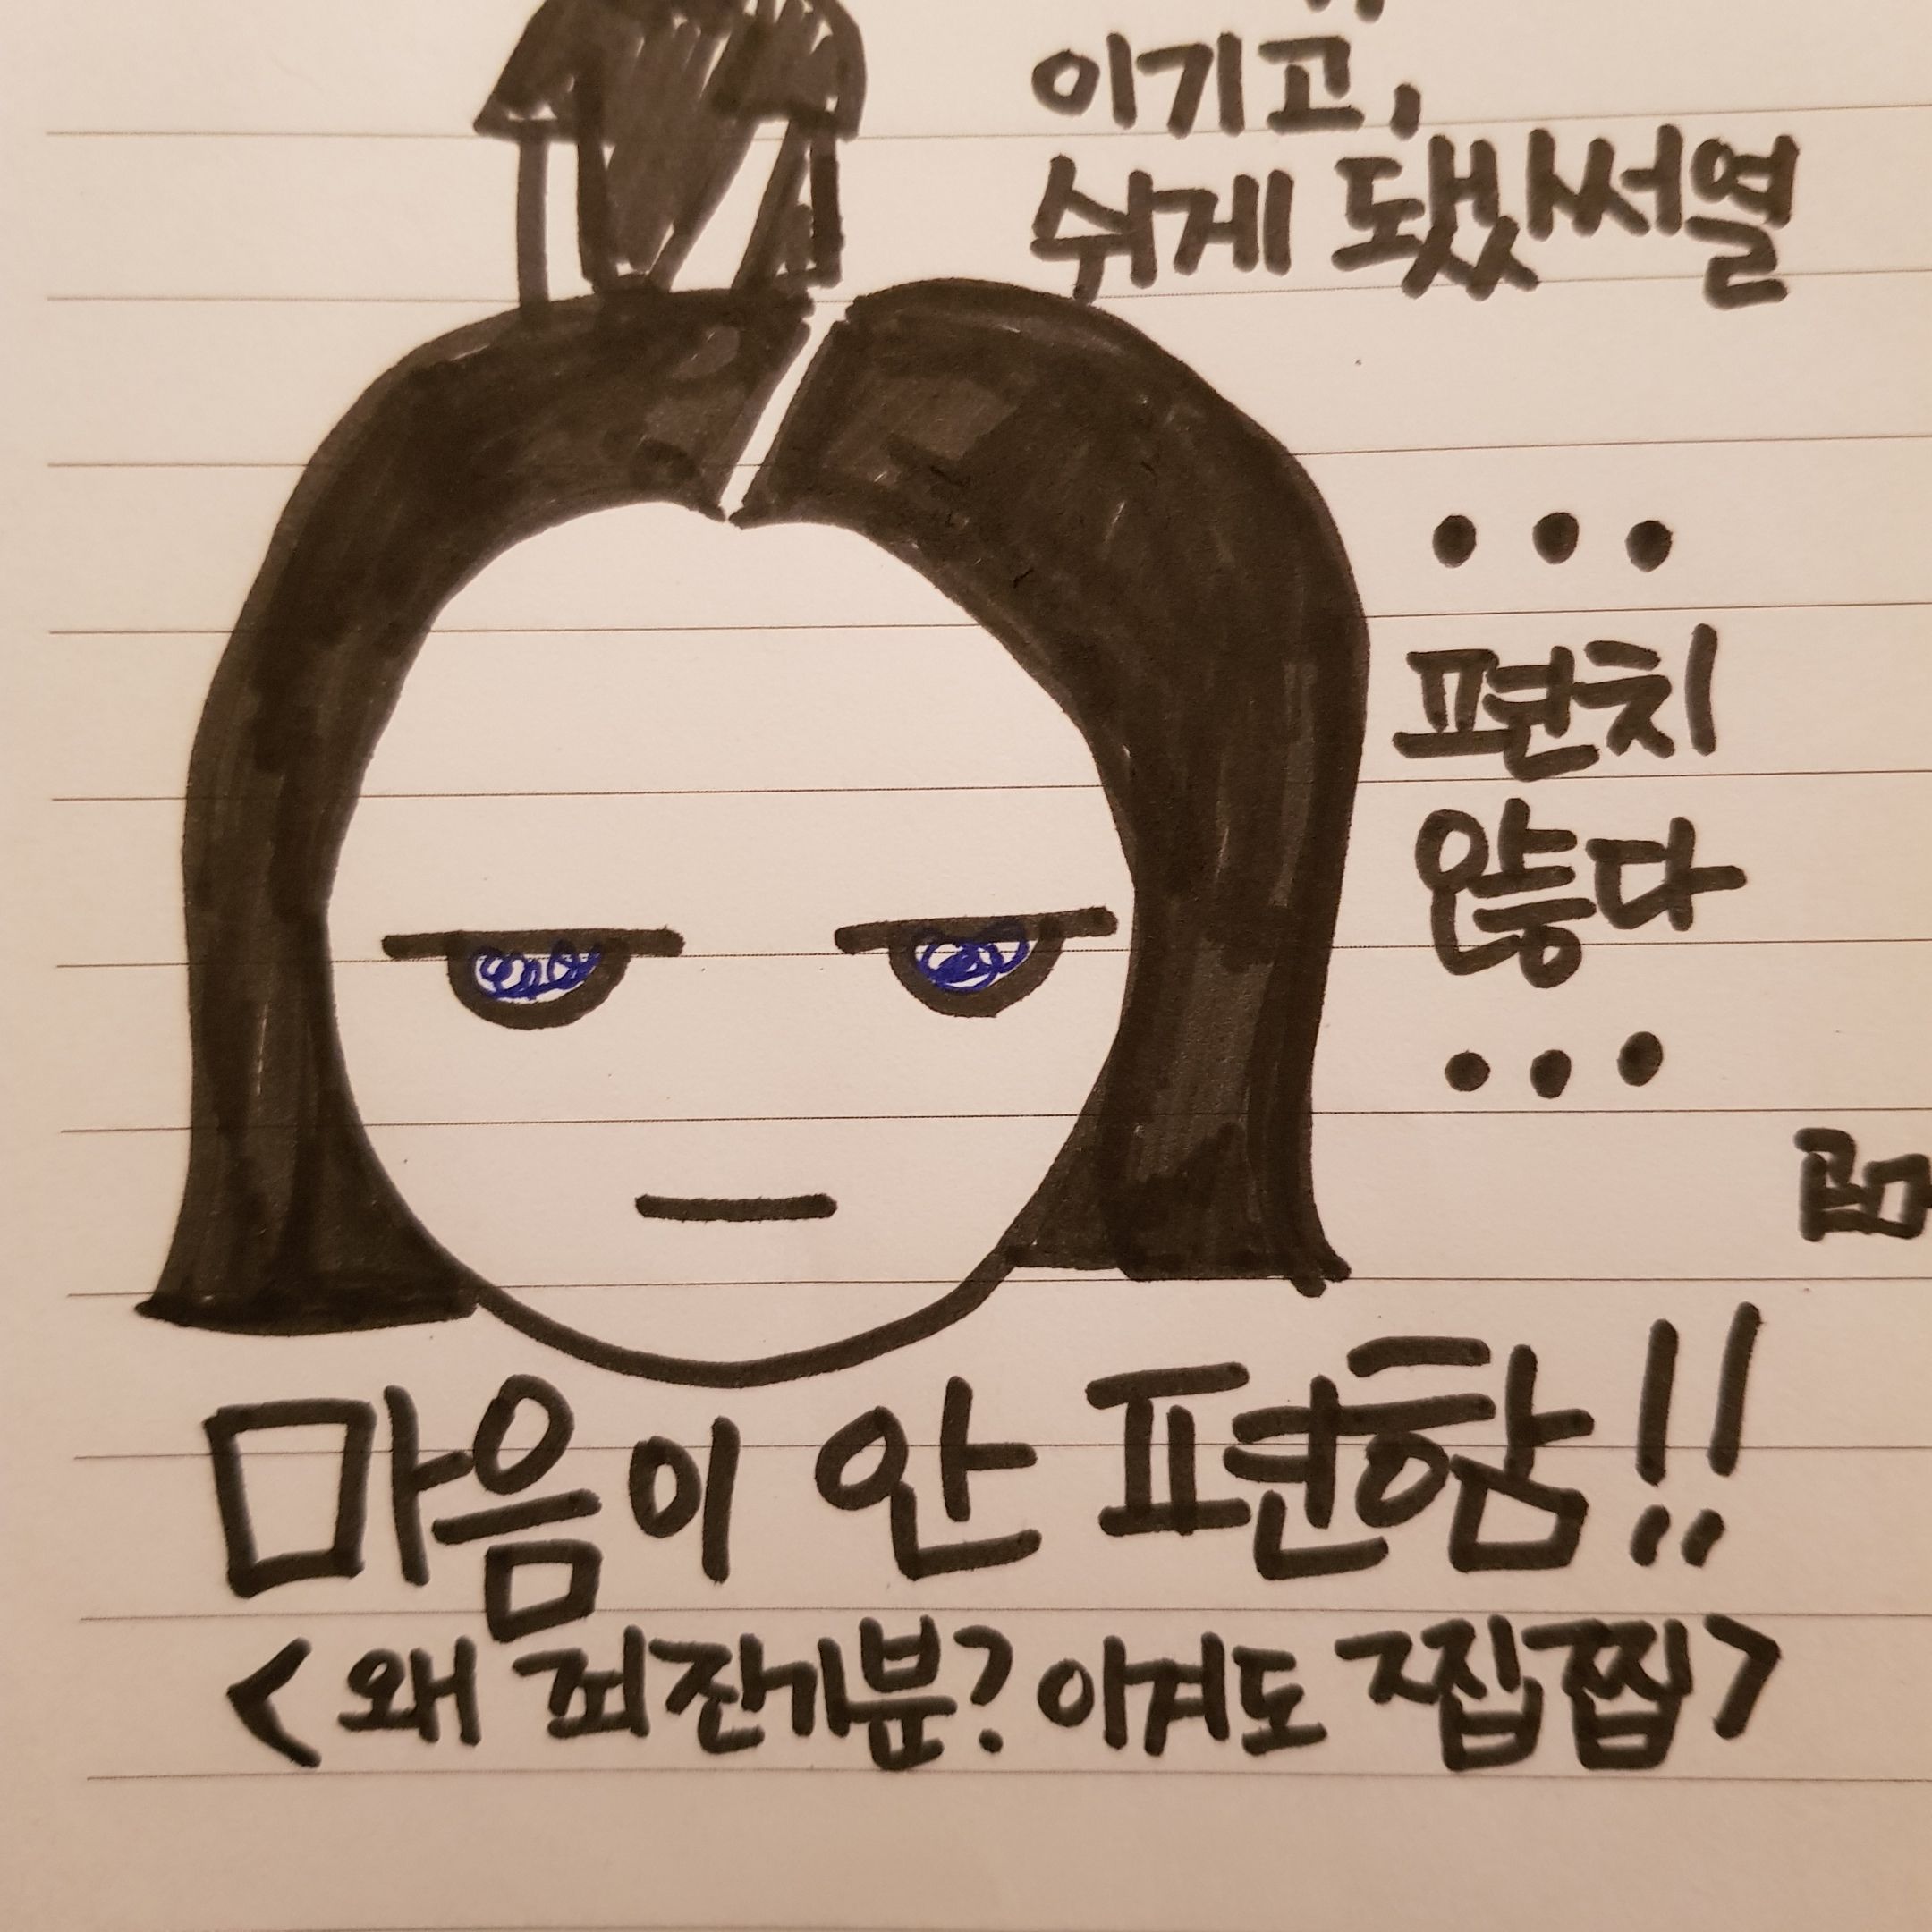 이기고,
쉬게 됐써열
...
편치
않다
...
마음이 안 편함!!
<왜 죄진기분? 이겨도 찝찝>